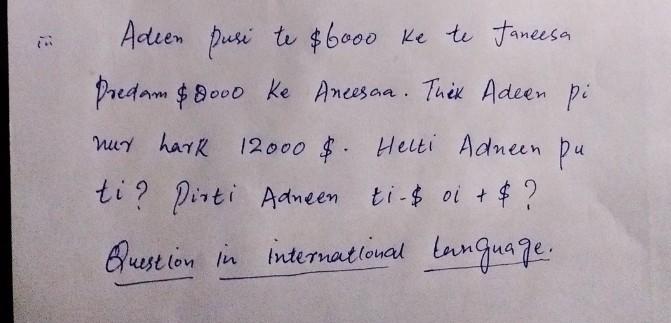 iii Adeen pusi te $6000 ke te Janeesa
Predam $8000 ke Aneesaa. Thek Adeen pi
nur hark 12000 $. Helti Adneen pu
ti? Dirti Adneen ti-$ oi + $?
Question in international language.